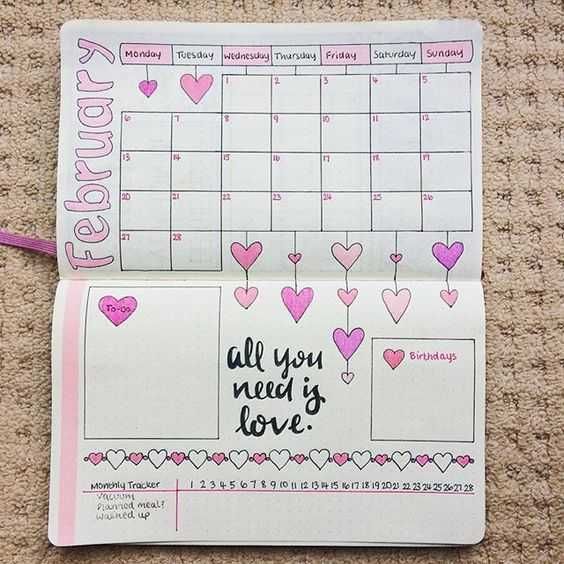 February
Monday Tuesday Wednesday Thursday Friday Saturday Sunday
1 2 3 4 5
6 7 8 9 10 11 12
13 14 15 16 17 18 19
20 21 22 23 24 25 26
27 28
To-Do
all you
need is
love.
Birthdays
Monthly Tracker 1 2 3 4 5 6 7 8 9 10 11 12 13 14 15 16 17 18 19 20 21 22 23 24 25 26 27 28
Vacuum
Planned meal?
Washed up